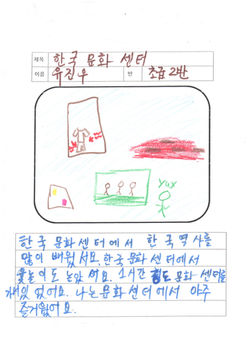 제목 한국 문화 센터
이름 유진우 반 초급 2반
yux
한국 문화센터에서 한국 역사를
많이 배웠서요. 한국 문화센터에서
윷놀이도 놀았서요. 1시간 문화 센터를
재있었어요. 나는 문화 센터에서 아주
즐거웠어요.